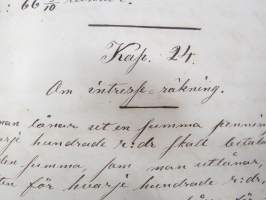 : 66 8/10
Kap. 24.
Om intresse-räkning.
man lånar ut en summa pennin
hundrade r:dr skall betala
den summa som man utlånar,
ten för hvarje hundrade r:dr,